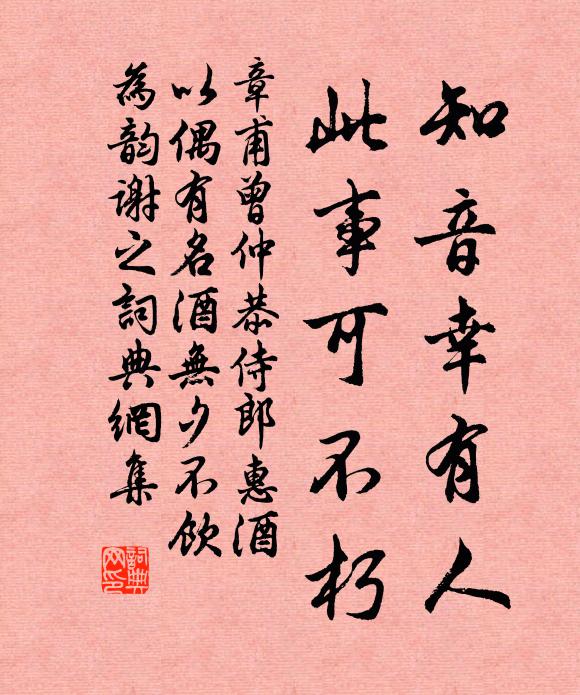 知音幸有人
此事可不朽
章甫曾仲恭侍郎惠酒
以偶有名酒無夕不飲
為韵謝之詞典網集
詞典
网印